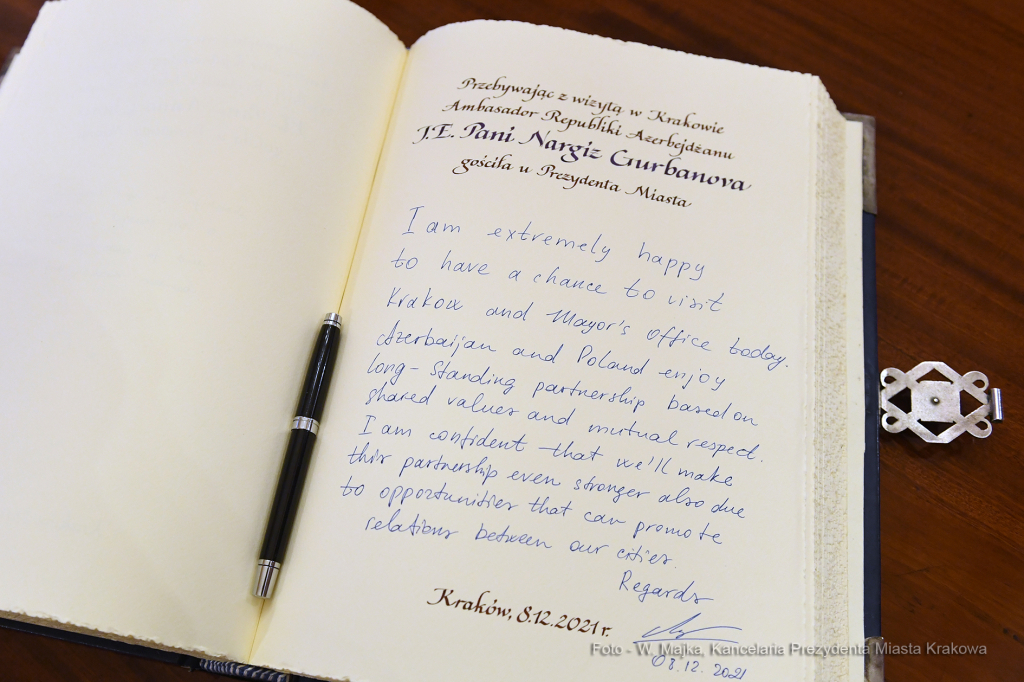 Przebywając z wizytą w Krakowie
Ambasador Republiki Azerbejdżanu
J.E. Pani Nargiz Gurbanova
gościła u Prezydenta Miasta
I am extremely happy
to have a chance to visit
Krakow and Mayor's office today.
Azerbaijan and Poland enjoy
long-standing partnership based on
shared values and mutual respect.
I am confident that we'll make
this partnership even stronger also due
to opportunities that can promote
relations between our cities.
Regards
Kraków, 8.12.2021 r.
08.12.2021
Foto - W. Majka, Kancelaria Prezydenta Miasta Krakowa